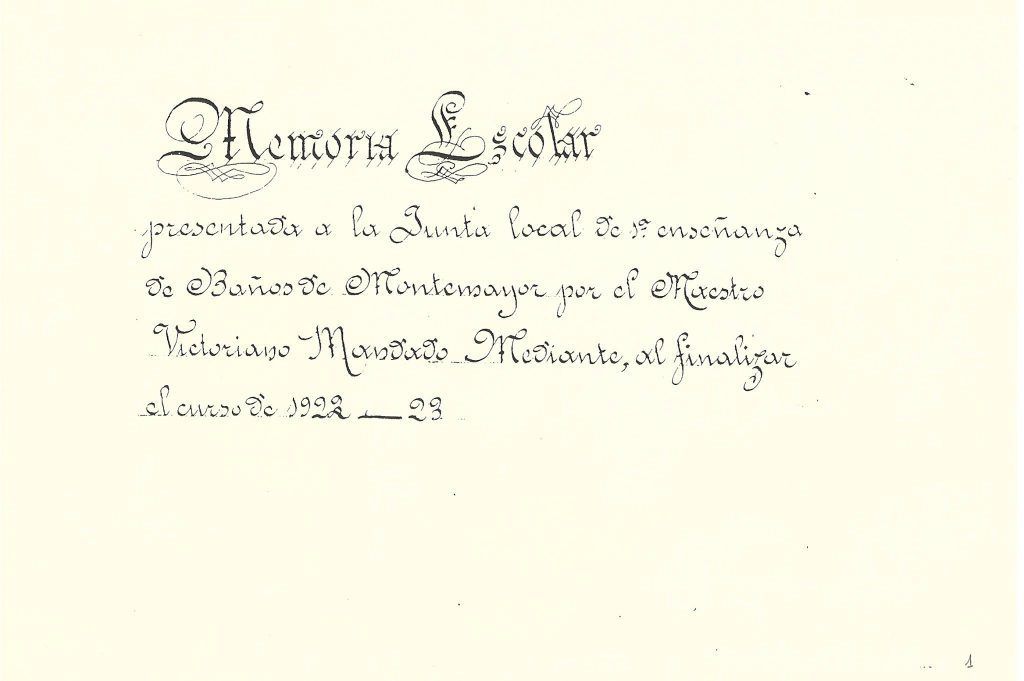 Memoria Escolar
presentada a la Junta local de 1ª enseñanza
de Baños de Montemayor por el Maestro
Victoriano Mandado Mediante, al finalizar
el curso de 1922 — 23
1